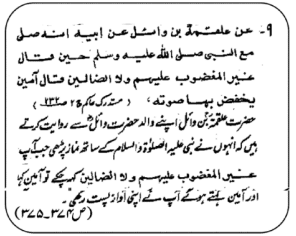 ۹- عن علقمة بن وائل عن ابيه انه صلى
مع النبى صلى الله عليه وسلم حين قال
غير المغضوب عليهم ولا الضالين قال آمين
يخفض بها صوته، (مستدرک حاکم ج۲ ص۲۳۲)
حضرت علقمہ بن وائل اپنے والد حضرت وائل سے روایت کرتے
ہیں کہ انہوں نے نبی علیہ الصلوٰۃ والسلام کے ساتھ نماز پڑھی جب آپ
غیر المغضوب علیهم ولا الضالین کہہ چکے تو آمین کہا
اور آمین کہتے ہوئے آپ نے اپنی آواز پست رکھی۔
(ص۳۷۴-۳۷۵)